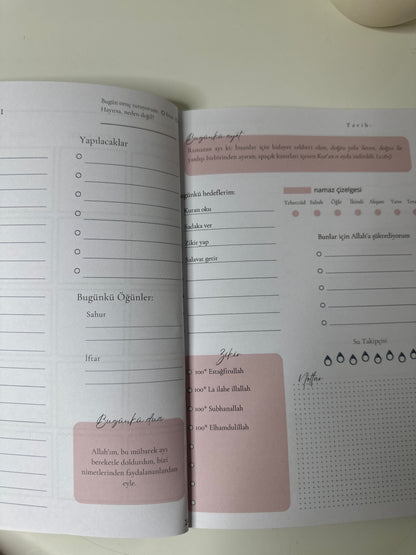 Bugün oruç tutuyorum:
Hayırsa, neden değil?
Yapılacaklar
Bugünkü Öğünler:
Sahur
İftar
Bugünkü dua
Allah'ım, bu mübarek ayı
bereketle doldurdun, bizi
nimetlerinden faydalananlardan
eyle.
Tarih:
Bugünkü ayet
Ramazan ayı ki; İnsanlar için hidayet rehberi olan, doğru yolu
yanlışı birbirinden ayıran, apaçık kanıtları içeren Kur'an o ayda indirildi. (2:185)
günkü hedeflerim:
Kuran oku
Sadaka ver
Zikir yap
Salavat getir
namaz çizelgesi
Teheccüd Sabah Öğle İkindi Akşam Yatsı
Bunlar için Allah'a şükrediyorum
Su Takipçisi
Zikir
100* Estağfirullah
100* La ilahe illallah
100* Subhanallah
100* Elhamdulillah
Notlar